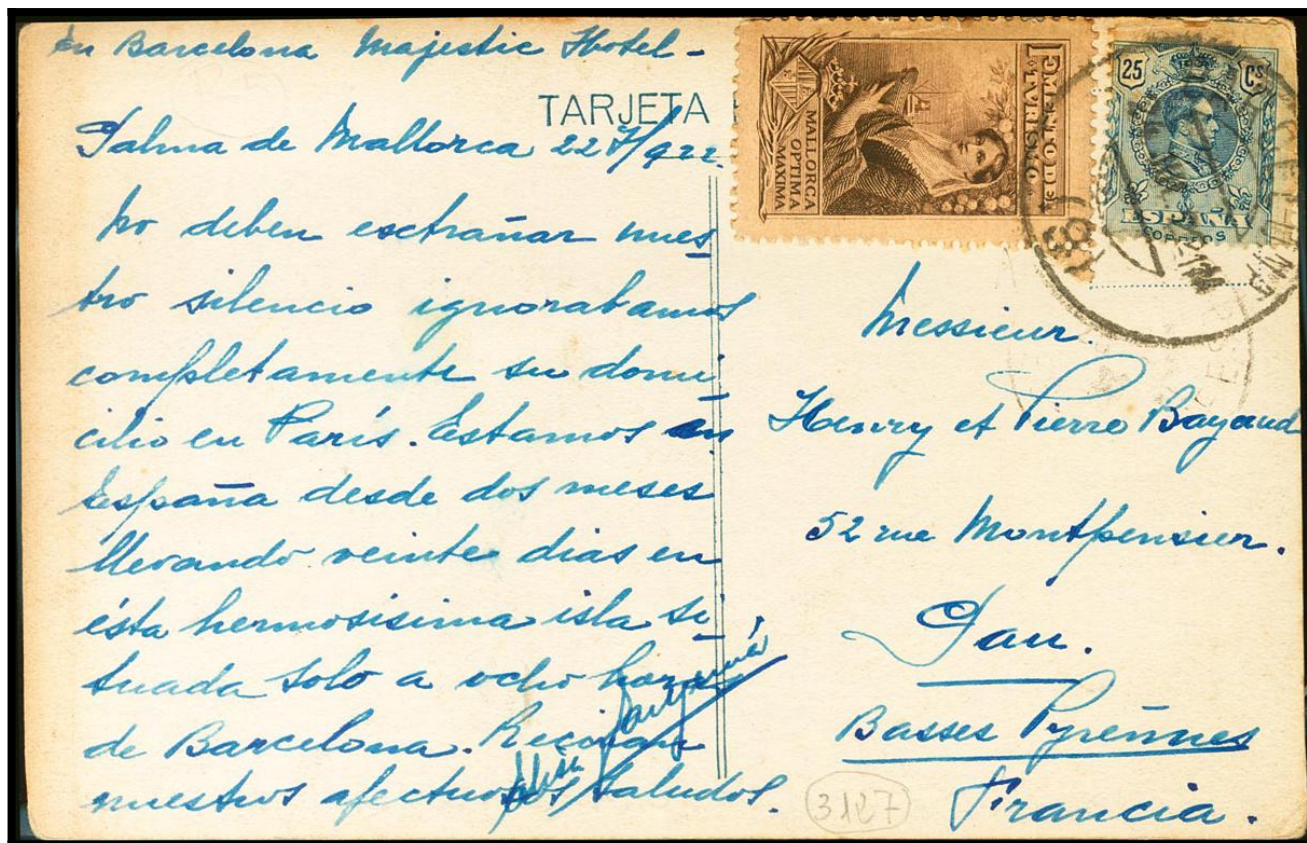 en Barcelona Majestic Hotel -
TARJETA
Palma de Mallorca 22 7/922.
No deben extrañar nues
tro silencio ignorabamos
completamente su domi
cilio en París. Estamos en
España desde dos meses
llevando veinte dias en
ésta hermosisima isla si
tuada solo a ocho horas
de Barcelona. Reciban
nuestros afectuosos saludos.
FOMENTO DE
TVRISMO
MALLORCA
OPTIMA
MAXIMA
25 Cs
ESPAÑA
CORREOS
Messieur.
Henry et Pierre Bayaud
52 rue Montpensier.
Pau.
Basses Pyrénnes
Francia.
3127